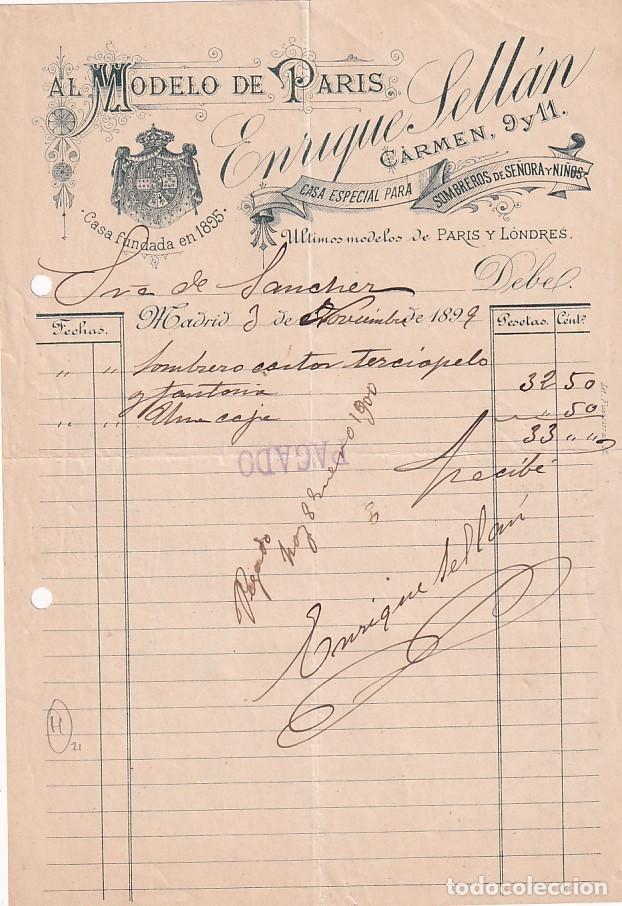 AL MODELO DE PARIS
Enrique Sellán
CÁRMEN, 9 y 11.
CASA ESPECIAL PARA SOMBREROS DE SEÑORA Y NIÑOS
Casa fundada en 1895.
Ultimos modelos de PARIS Y LÓNDRES.
Sra de Sancher Debe
Madrid 3 de Noviembre de 1899
Fechas. Pesetas. Cénts.
" " Sombrero castor terciopelo
y fantasia 32 50
" " Una caja " 50
33 " "
PAGADO
Recibí
Pagado hoy 8 Enero 1900
Enrique Sellán
H
21
todocoleccion